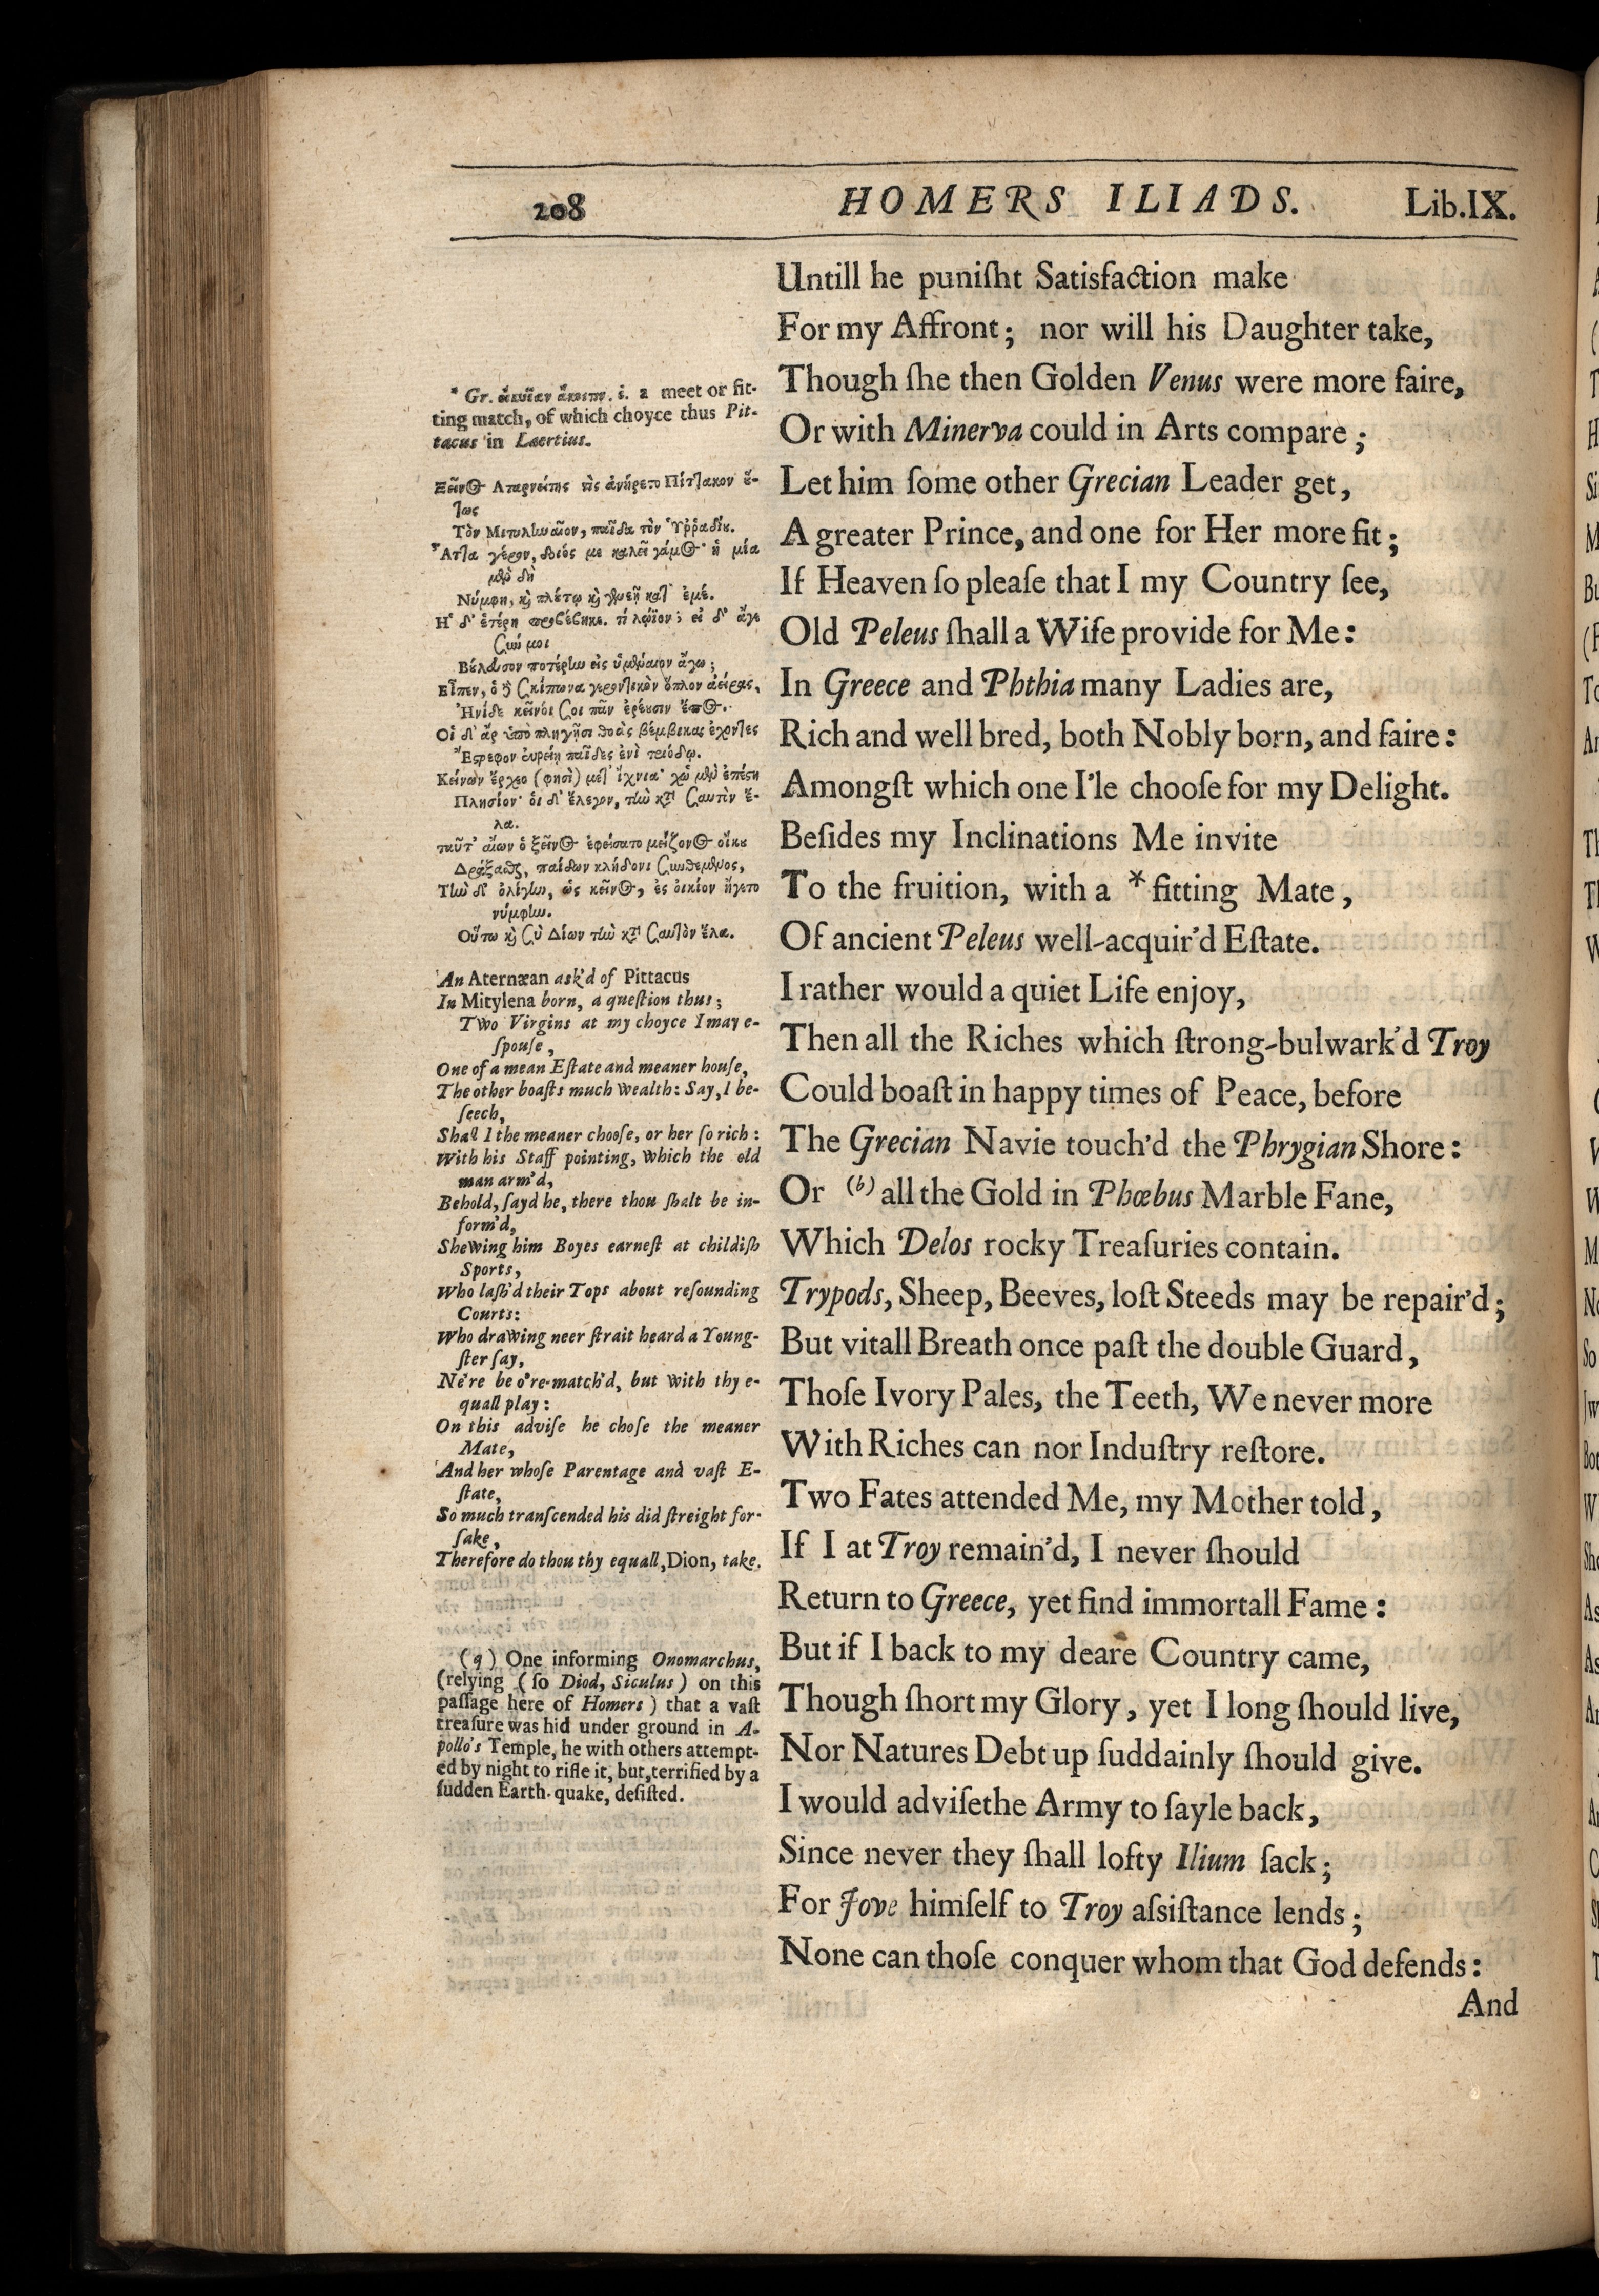 208 HOMERS ILIADS. Lib.IX.
Untill he puniſht Satisfaction make
For my Affront; nor will his Daughter take,
Though ſhe then Golden Venus were more faire,
Or with Minerva could in Arts compare;
Let him ſome other Grecian Leader get,
A greater Prince, and one for Her more fit;
If Heaven ſo pleaſe that I my Country ſee,
Old Peleus ſhall a Wife provide for Me:
In Greece and Phthia many Ladies are,
Rich and well bred, both Nobly born, and faire:
Amongſt which one I'le chooſe for my Delight.
Beſides my Inclinations Me invite
To the fruition, with a * fitting Mate,
Of ancient Peleus well-acquir'd Eſtate.
I rather would a quiet Life enjoy,
Then all the Riches which ſtrong-bulwark'd Troy
Could boaſt in happy times of Peace, before
The Grecian Navie touch'd the Phrygian Shore:
Or (b) all the Gold in Phœbus Marble Fane,
Which Delos rocky Treaſuries contain.
Trypods, Sheep, Beeves, loſt Steeds may be repair'd;
But vitall Breath once paſt the double Guard,
Thoſe Ivory Pales, the Teeth, We never more
With Riches can nor Induſtry reſtore.
Two Fates attended Me, my Mother told,
If I at Troy remain'd, I never ſhould
Return to Greece, yet find immortall Fame:
But if I back to my deare Country came,
Though ſhort my Glory, yet I long ſhould live,
Nor Natures Debt up ſuddainly ſhould give.
I would adviſethe Army to ſayle back,
Since never they ſhall lofty Ilium ſack;
For Jove himſelf to Troy aſsiſtance lends;
None can thoſe conquer whom that God defends:
And
* Gr. a meet or fit-
ting match, of which choyce thus Pit-
tacus in Laertius.
Αταρνείτης τὶς ἀνήρετο Πίτ]ακον ἔ-
]ως
Τὸν παῖδα τὸν
γέρον, διός με καλεῖ ἡ μία
Νύμφη,
Εἶπεν,
Οἱ δ' ἄρ
παῖδες ἐνὶ
νύμφων.
An Aternæan ask'd of Pittacus
In Mitylena born, a queſtion thus;
Two Virgins at my choyce I may e-
ſpouſe,
One of a mean Eſtate and meaner houſe,
The other boaſts much wealth: Say, I be-
ſeech,
Shall I the meaner chooſe, or her ſo rich:
With his Staff pointing, which the old
man arm'd,
Behold, ſayd he, there thou ſhalt be in-
form'd,
Shewing him Boyes earneſt at childiſh
Sports,
Who laſh'd their Tops about reſounding
Courts:
Who drawing neer ſtrait heard a Young-
ſter ſay,
Ne're be o're-match'd, but with thy e-
quall play:
On this adviſe he choſe the meaner
Mate,
And her whoſe Parentage and vaſt E-
ſtate,
So much tranſcended his did ſtreight for-
ſake,
Therefore do thou thy equall, Dion, take.
(q) One informing Onomarchus,
(relying (ſo Diod, Siculus) on this
paſſage here of Homers) that a vaſt
treaſure was hid under ground in A-
pollo's Temple, he with others attempt-
ed by night to rifle it, but, terrified by a
ſudden Earth-quake, deſiſted.